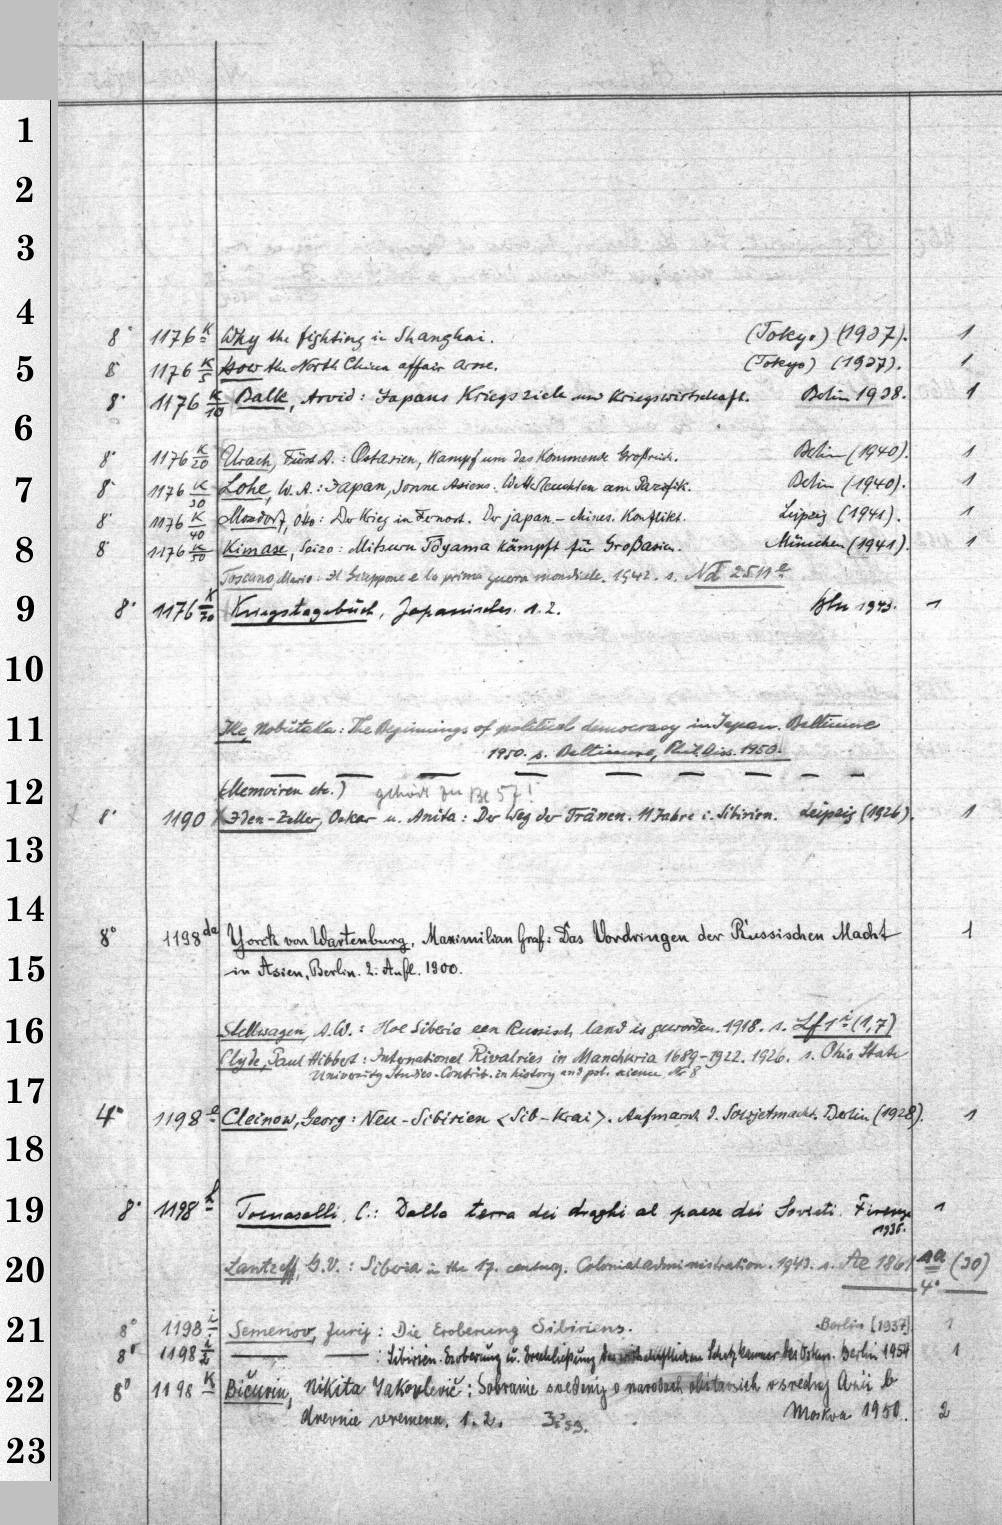 1
2
3
4
8° 1176 K Why the fighting in Shanghai. (Tokyo) (1937). 1
5
8° 1176 K/5 How the North China affair arose. (Tokyo) (1937). 1
8° 1176 K/10 Balk, Arvid: Japans Kriegsziele und Kriegswirtschaft. Berlin 1938. 1
6
8° 1176 K/20 Urach, Fürst A.: Ostasien, Kampf um das Kommende Großreich. Berlin (1940). 1
7
8° 1176 K/30 Lohe, W. A.: Japan, Sonne Asiens. Wetterleuchten am Pazifik. Berlin (1940). 1
8° 1176 K/40 Mosdorf, Otto: Der Krieg in Fernost. Der japan.-chines. Konflikt. Leipzig (1941). 1
8
8° 1176 K/50 Kimase, Seizo: Mitsuru Tōyama kämpft für Großasien. München (1941). 1
Toscano, Mario: Il Giappone e la prima guerra mondiale. 1942. s. Nd 2511 e
9
8° 1176 K/70 Kriegstagebuch, Japanisches. 1. 2. Bln 1943. 1
10
11
Ike, Nobutaka: The Beginnings of political democracy in Japan. Baltimore
1950. s. Baltimore, Phil. Diss. 1950.
12
(Memoiren etc.) gehört zu Be 57!
8° 1190 Iden-Zeller, Oskar u. Anita: Der Weg der Tränen. 11 Jahre i. Sibirien. Leipzig (1926). 1
13
14
8° 1198 da Yorck von Wartenburg, Maximilian Graf: Das Vordringen der Russischen Macht 1
15
in Asien, Berlin. 2. Aufl. 1900.
16
Stellwagen, A. W.: Hoe Siberie een Russisch land is geworden. 1918. s. Lf 1 i (1,7)
Clyde, Paul Hibbert: International Rivalries in Manchuria 1689-1922. 1926. s. Ohio State
University Studies. Contrib. in history and pol. science Nr 8
17
4° 1198 e Cleinow, Georg: Neu-Sibirien <Sib-Krai>. Aufmarsch d. Sowjetmacht. Berlin (1928). 1
18
19
8° 1198 h Tomaselli, C.: Dalla terra dei draghi al paese dei Sovieti. Firenze 1
1935.
20
Lantzeff, G. V.: Siberia in the 17. century. Colonial administration. 1943. s. Ae 1861 aa/4° (30)
21
8° 1198 i Semenov, Jurij: Die Eroberung Sibiriens. Berlin [1937] 1
8° 1198 i/2 — — : Sibirien. Eroberung u. Erschließung der wirtschaftlichen Schatzkammer des Ostens. Berlin 1954 1
22
8° 1198 K Bičurin, Nikita Jakovlevič: Sobranie svedenij o narodach obitavšich v srednej Azii v
drevnie vremena. 1. 2. Moskva 1950. 2
23